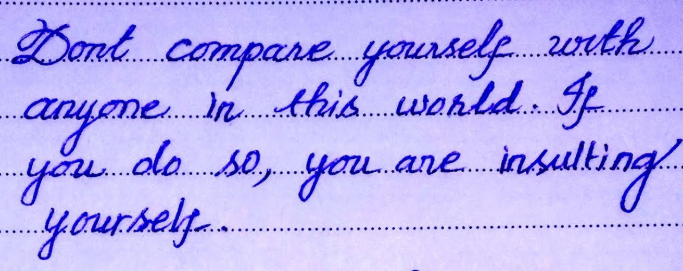 Dont compare yourself with
anyone in this world. If
you do so, you are insulting
yourself.